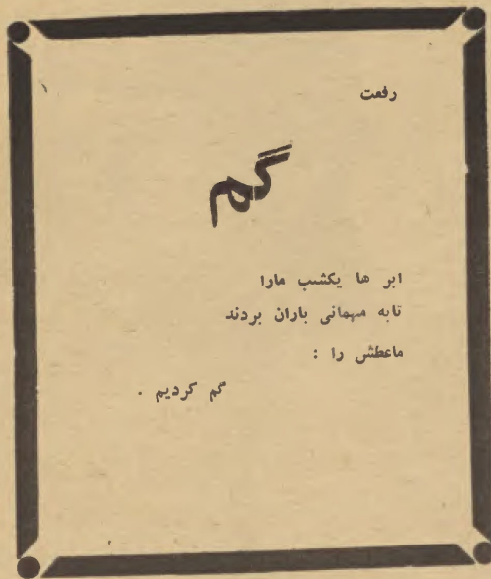 رفعت
گم
ابر ها یکشب مارا
تابه مهمانی باران بردند
ماعطش را :
گم کردیم .